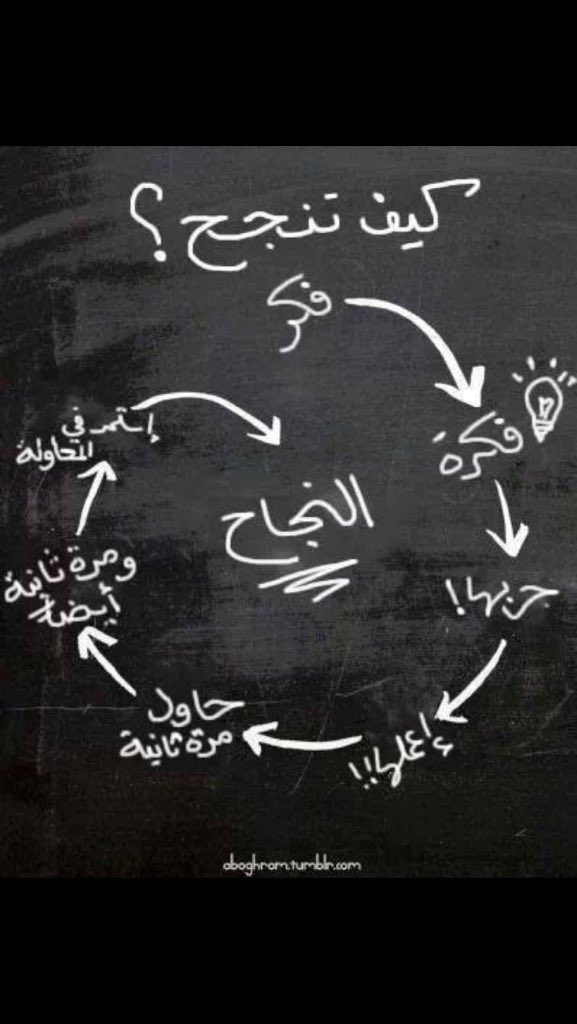 كيف تنجح؟
فكر
فكرة
جربها!
إعملها!!
حاول
مرة ثانية
ومرة ثانية
أيضاً
إستمر في
المحاولة
النجاح
aboghram.tumblr.com